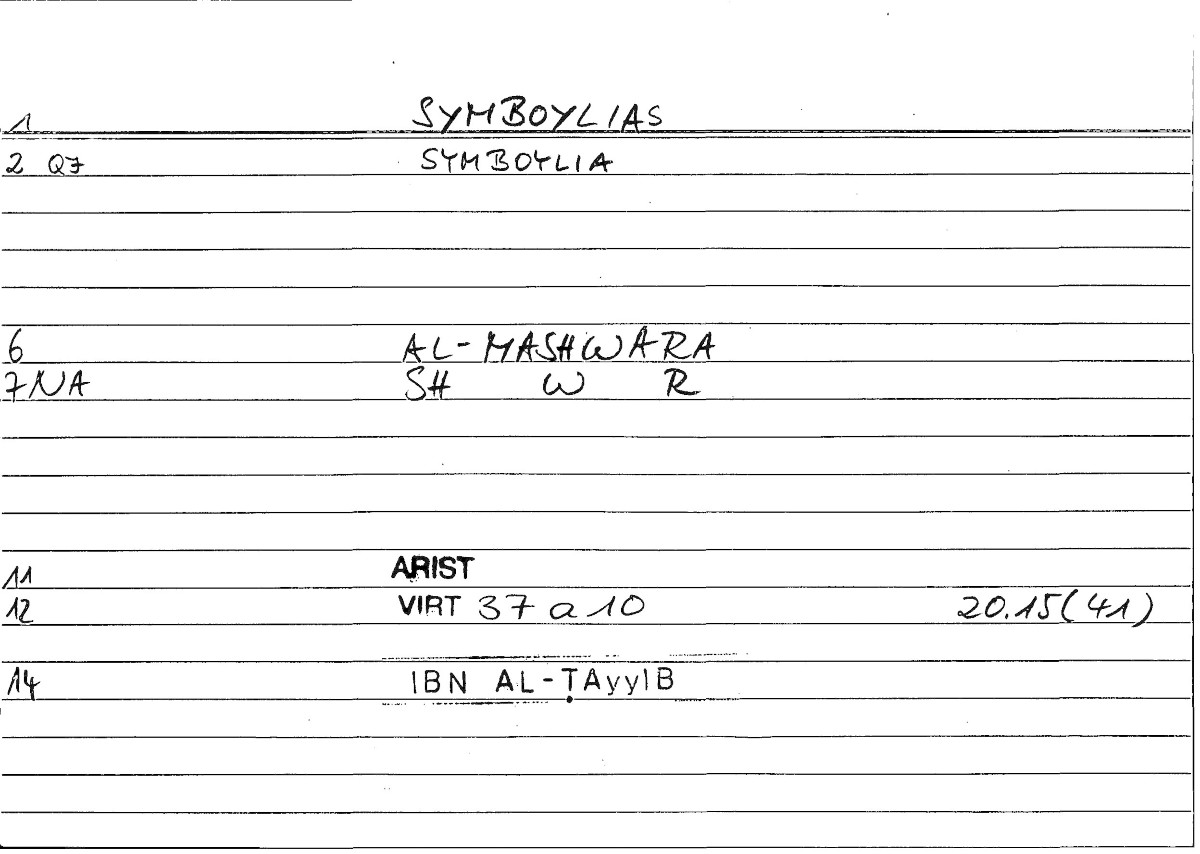 1 SYMBOYLIAS
2 Q7 SYMBOYLIA
6 AL-MASHWARA
7 NA SH W R
11 ARIST
12 VIRT 37 a 10 20.15(41)
14 IBN AL-ṬAyyIB